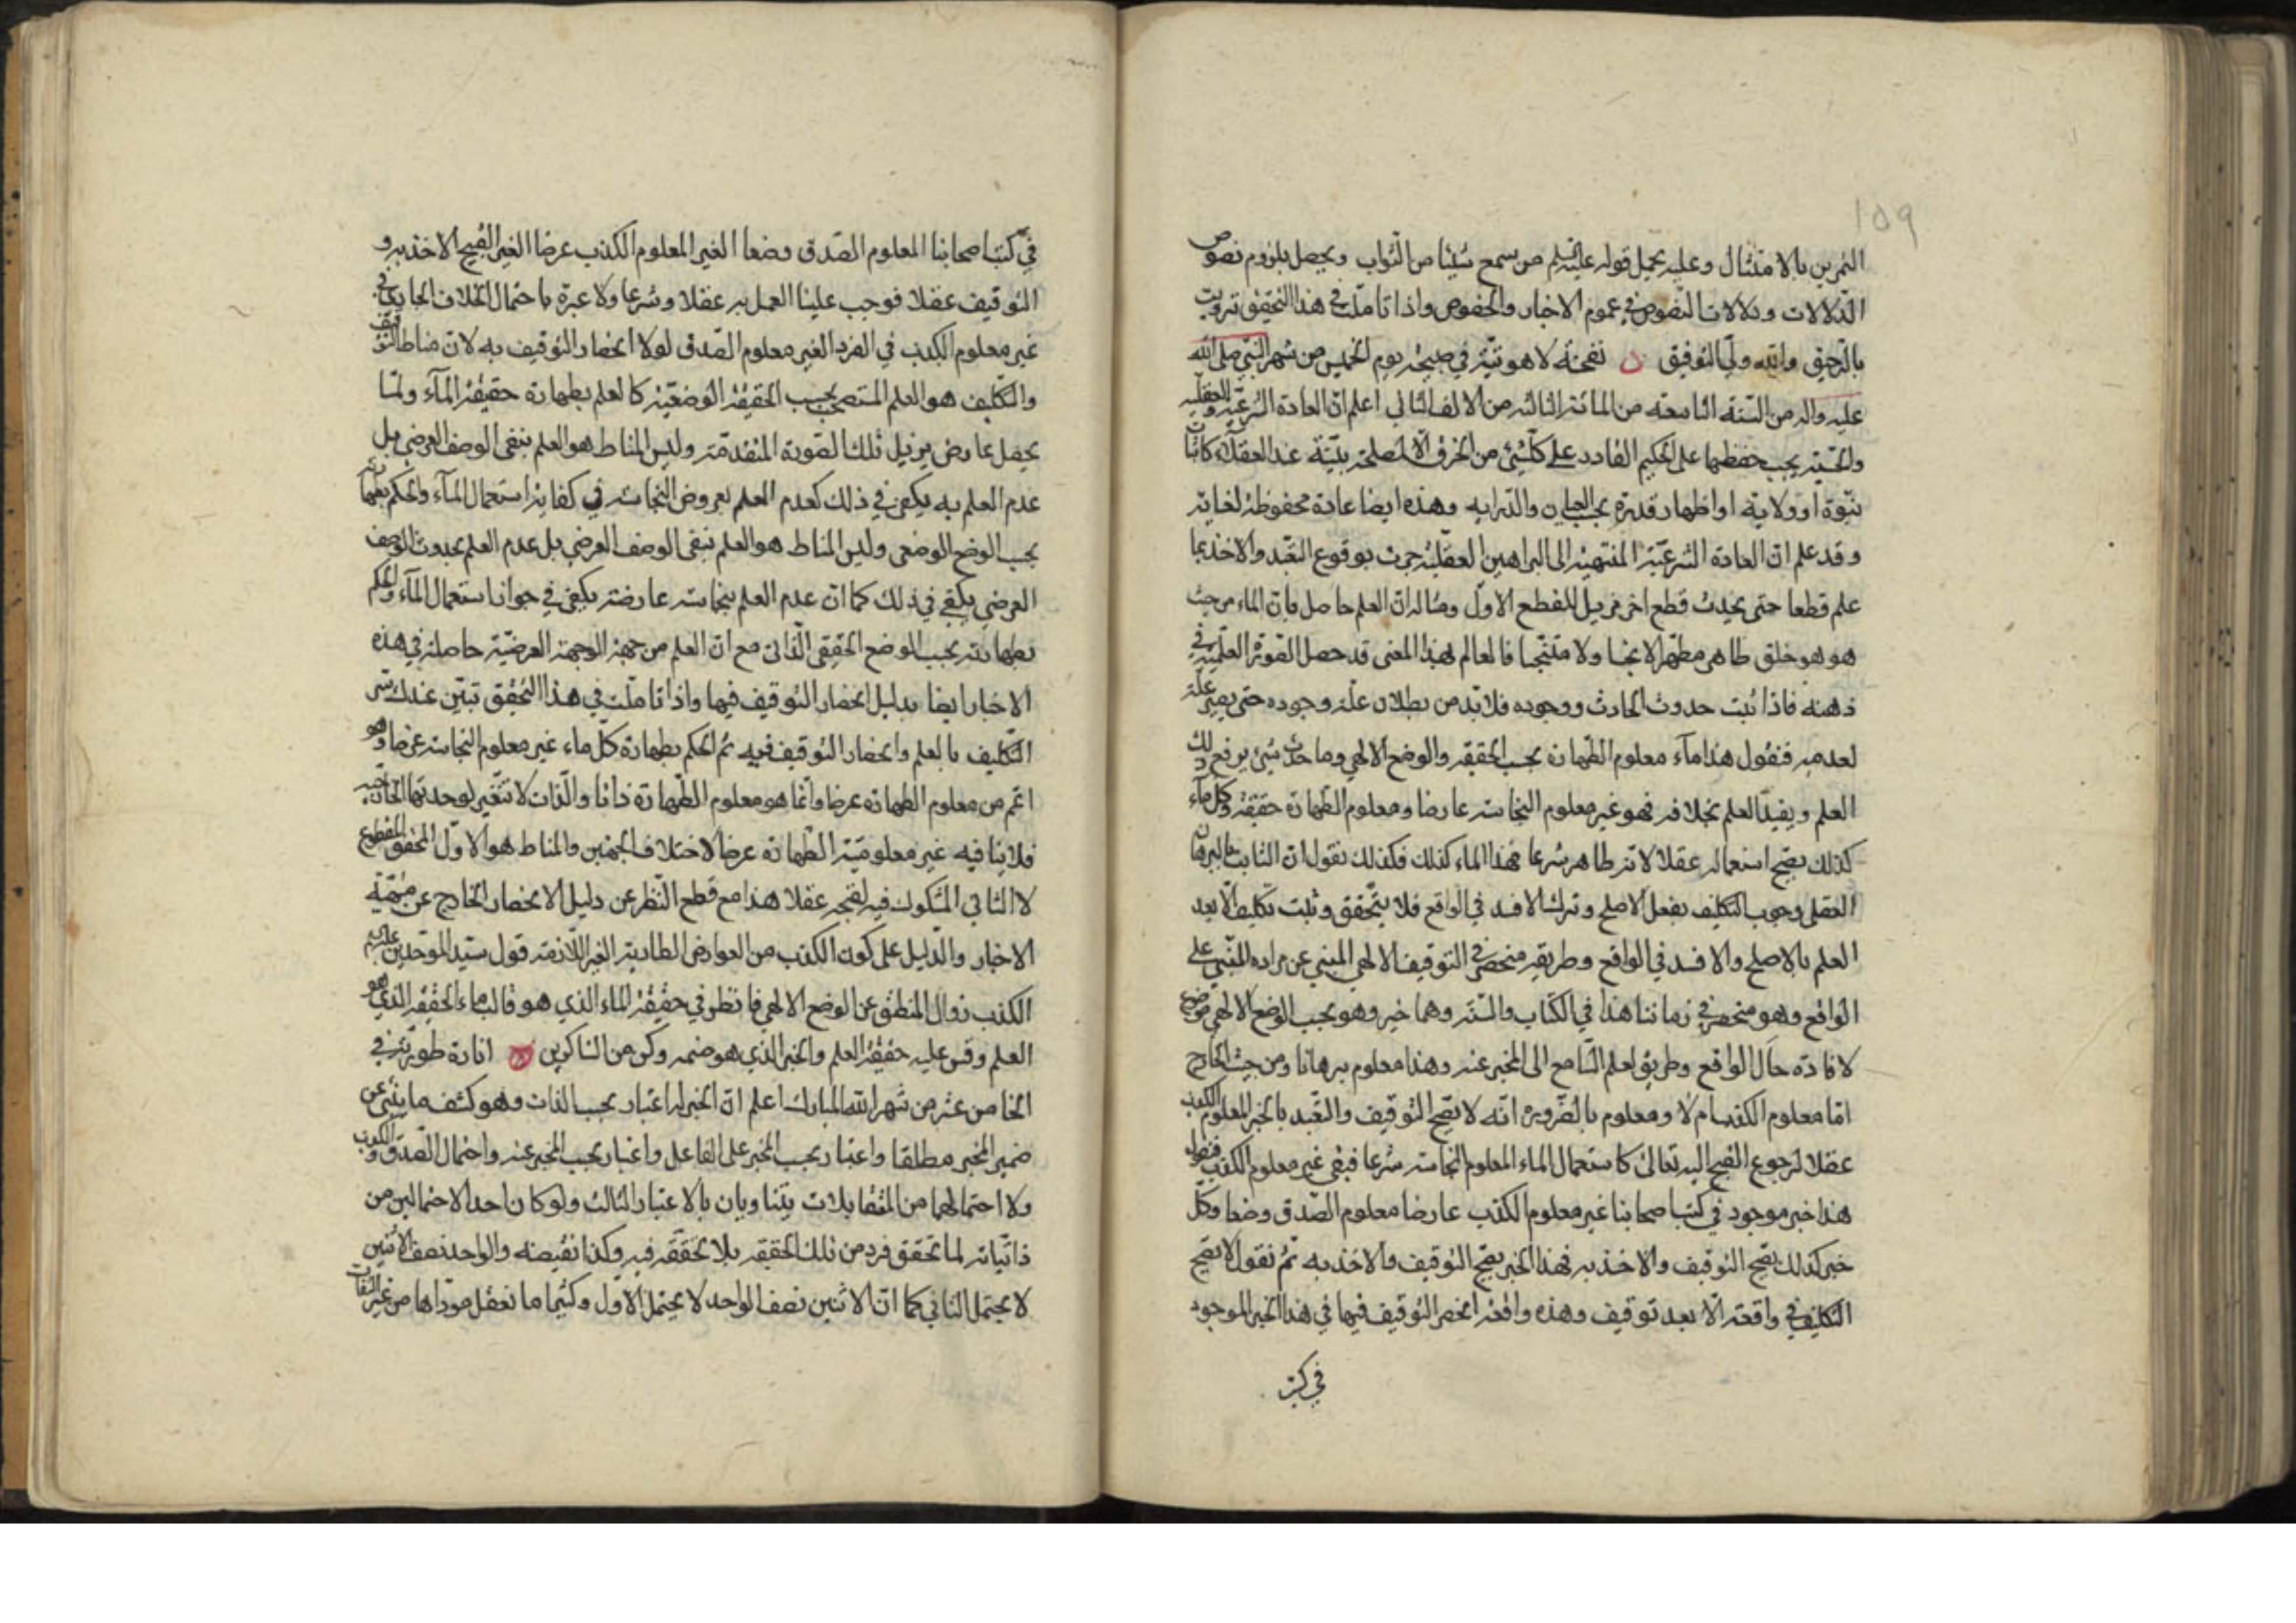 ١٥٩
التمرين بالامتثال وعليه يحمل قوله عليه السلم من سمع شيئا من الثواب ويحصل بلزوم نصوص
الدلالات ودلالات النصوص في عموم الاخبار والخصوص واذا تاملت في هذا التحقيق ترويت
بالرحيق والله ولي التوفيق ں نفحة لاهوتية في صبيحة يوم الخميس من شهر النبي صلى الله
عليه واله من السنة التاسعة من المائة الثالثة من الالف الثاني اعلم ان العادة الشرعية والعقلية
والحسية يجب حفظها على الحكيم القادر على كل شيئ من الخرق الا لمصلحة بينة عند العقلاء كاثبات
نبوة او ولاية او اظهار قدرة بحسب العلم والدراية وهذه ايضا عادة محفوظة لغاية
وقد علم ان العادة الشرعية المنتهية الى البراهين العقلية جرت بوقوع التعبد والاخذ بما
علم قطعا حتى يحدث قطع اخر مزيل للقطع الاول ومثاله ان العلم حاصل بان الماء من حيث
هو هو خلق طاهر مطهر الا نجسا ولا متنجسا فالعالم بهذا المعنى قد حصل الصورة العلمية في
ذهنه فاذا ثبت حدوث الحادث ووجوده فلا بد من بطلان علة وجوده حتى يصير علة
لعدمه فنقول هذا ماء معلوم الطهارة بحسب الحقيقة والوضع الالهي وما حدث شيئ يرفع ذلك
العلم ويفيد العلم بخلافه فهو غير معلوم النجاسة عارضا ومعلوم الطهارة حقيقة وكل ماء
كذلك يصح استعماله عقلا لانه طاهر شرعا فهذا الماء كذلك فكذلك نقول ان الثابت بالبرهان
العقلي وجوب التكليف بفعل الاصلح وترك الافسد في الواقع فلا يتحقق وثبت تكليف الا بعد
العلم بالاصلح والافسد في الواقع وطريقه منحصر في التوقيف الالهي المبني عن مراده المبني على
الواقع وهو منحصر في زماننا هذا في الكتاب والسنة وهما خبر وهو بحسب الوضع الالهي موضوع
لافادة حال الواقع وطريق لعلم السامع الى المخبر عنه وهذا معلوم برهانا ومن حيث الخارج
اما معلوم الكذب ام لا ومعلوم بالضرورة انه لا يصح التوقيف والتعبد بالخبر المعلوم الكذب
عقلا لرجوع القبح اليه تعالى كاستعمال الماء المعلوم النجاسة شرعا فبقي غير معلوم الكذب فنقول
هذا خبر موجود في كتب اصحابنا غير معلوم الكذب عارضا معلوم الصدق وضعا وكل
خبر كذلك يصح التوقيف والاخذ به فهذا الخبر يصح التوقيف والاخذ به ثم نقول لا يصح
التكليف في واقعة الا بعد توقيف وهذه واقعة انحصر التوقيف فيها في هذا الخبر الموجود
في كتب
في كتب اصحابنا المعلوم الصدق وضعا الغير المعلوم الكذب عرضا الغير القبيح الاخذ به و
التوقيف عقلا فوجب علينا العمل به عقلا وشرعا ولا عبرة باحتمال الخلاف الجايز في
غير معلوم الكذب في الفرد الغير معلوم الصدق لولا انحصار التوقيف به لان مناط التوقيف
والتكليف هو العلم المستصحب بحسب الحقيقة الوضعية كالعلم بطهارة حقيقة الماء ولما
يحصل عارض يزيل تلك الصورة المتقدمة وليس المناط هو العلم بنفي الوصف العرضي بل
عدم العلم به يكفي في ذلك كعدم العلم بعروض النجاسة في كفاية استعمال الماء والحكم بطهارته
بحسب الوضع الوضعي وليس المناط هو العلم بنفي الوصف العرضي بل عدم العلم بحدوث الوصف
العرضي يكفي في ذلك كما ان عدم العلم بنجاسة عارضة يكفي في جواز استعمال الماء والحكم
بطهارته بحسب الوضع الحقيقي الذاتي مع ان العلم من جهة الوجهة العرضية حاصلة في هذه
الاخبار ايضا بدليل انحصار التوقيف فيها واذا تاملت في هذا التحقيق تبين عندك سر
التكليف بالعلم وانحصار التوقيف فيه ثم الحكم بطهارة كل ماء غير معلوم النجاسة عرضا وهو
اعم من معلوم الطهارة عرضا وانما هو معلوم الطهارة ذاتا والذات لا تتغير لوحدتها الخاصية
فلا ينافيه غير معلومية الطهارة عرضا لاختلاف الجهتين والمناط هو الاول المحقق المقطوع
لا الثاني المشكوك فيه لقبحه عقلا هذا مع قطع النظر عن دليل الانحصار الخارج عن
الاخبار والدليل على كون الكذب من العوارض الطارية الغير اللازمة قول سيد الموحدين عليه السلم
الكذب زوال المنطق عن الوضع الالهي فانظر في حقيقة الماء الذي هو قالب ماء الحقيقة الذي هو
العلم وقس عليه حقيقة العلم والخبر الذي هو ضمه وكن من الشاكرين انارة طورية في
الخامس عشر من شهر الله المبارك اعلم ان الخبر له اعتبار بحسب الذات وهو كشف ما ينبئ عن
ضمير المخبر مطلقا واعتبار بحسب المخبر على الفاعل واعتبار بحسب المخبر عنه واحتمال الصدق والكذب
ولا احتمالهما من المتقابلات يتساويان بالاعتبار الثالث ولو كان احد الاحتمالين من
ذاتياته لما تحقق فرد من تلك الحقيقة بلا تحققه فيه وكذا نقيضه والواحد نصف الاثنين
لا يحتمل الثاني كما ان الاثنين نصف الواحد لا يحتمل الاول وكثيرا ما نعقل موداها من غير التفات